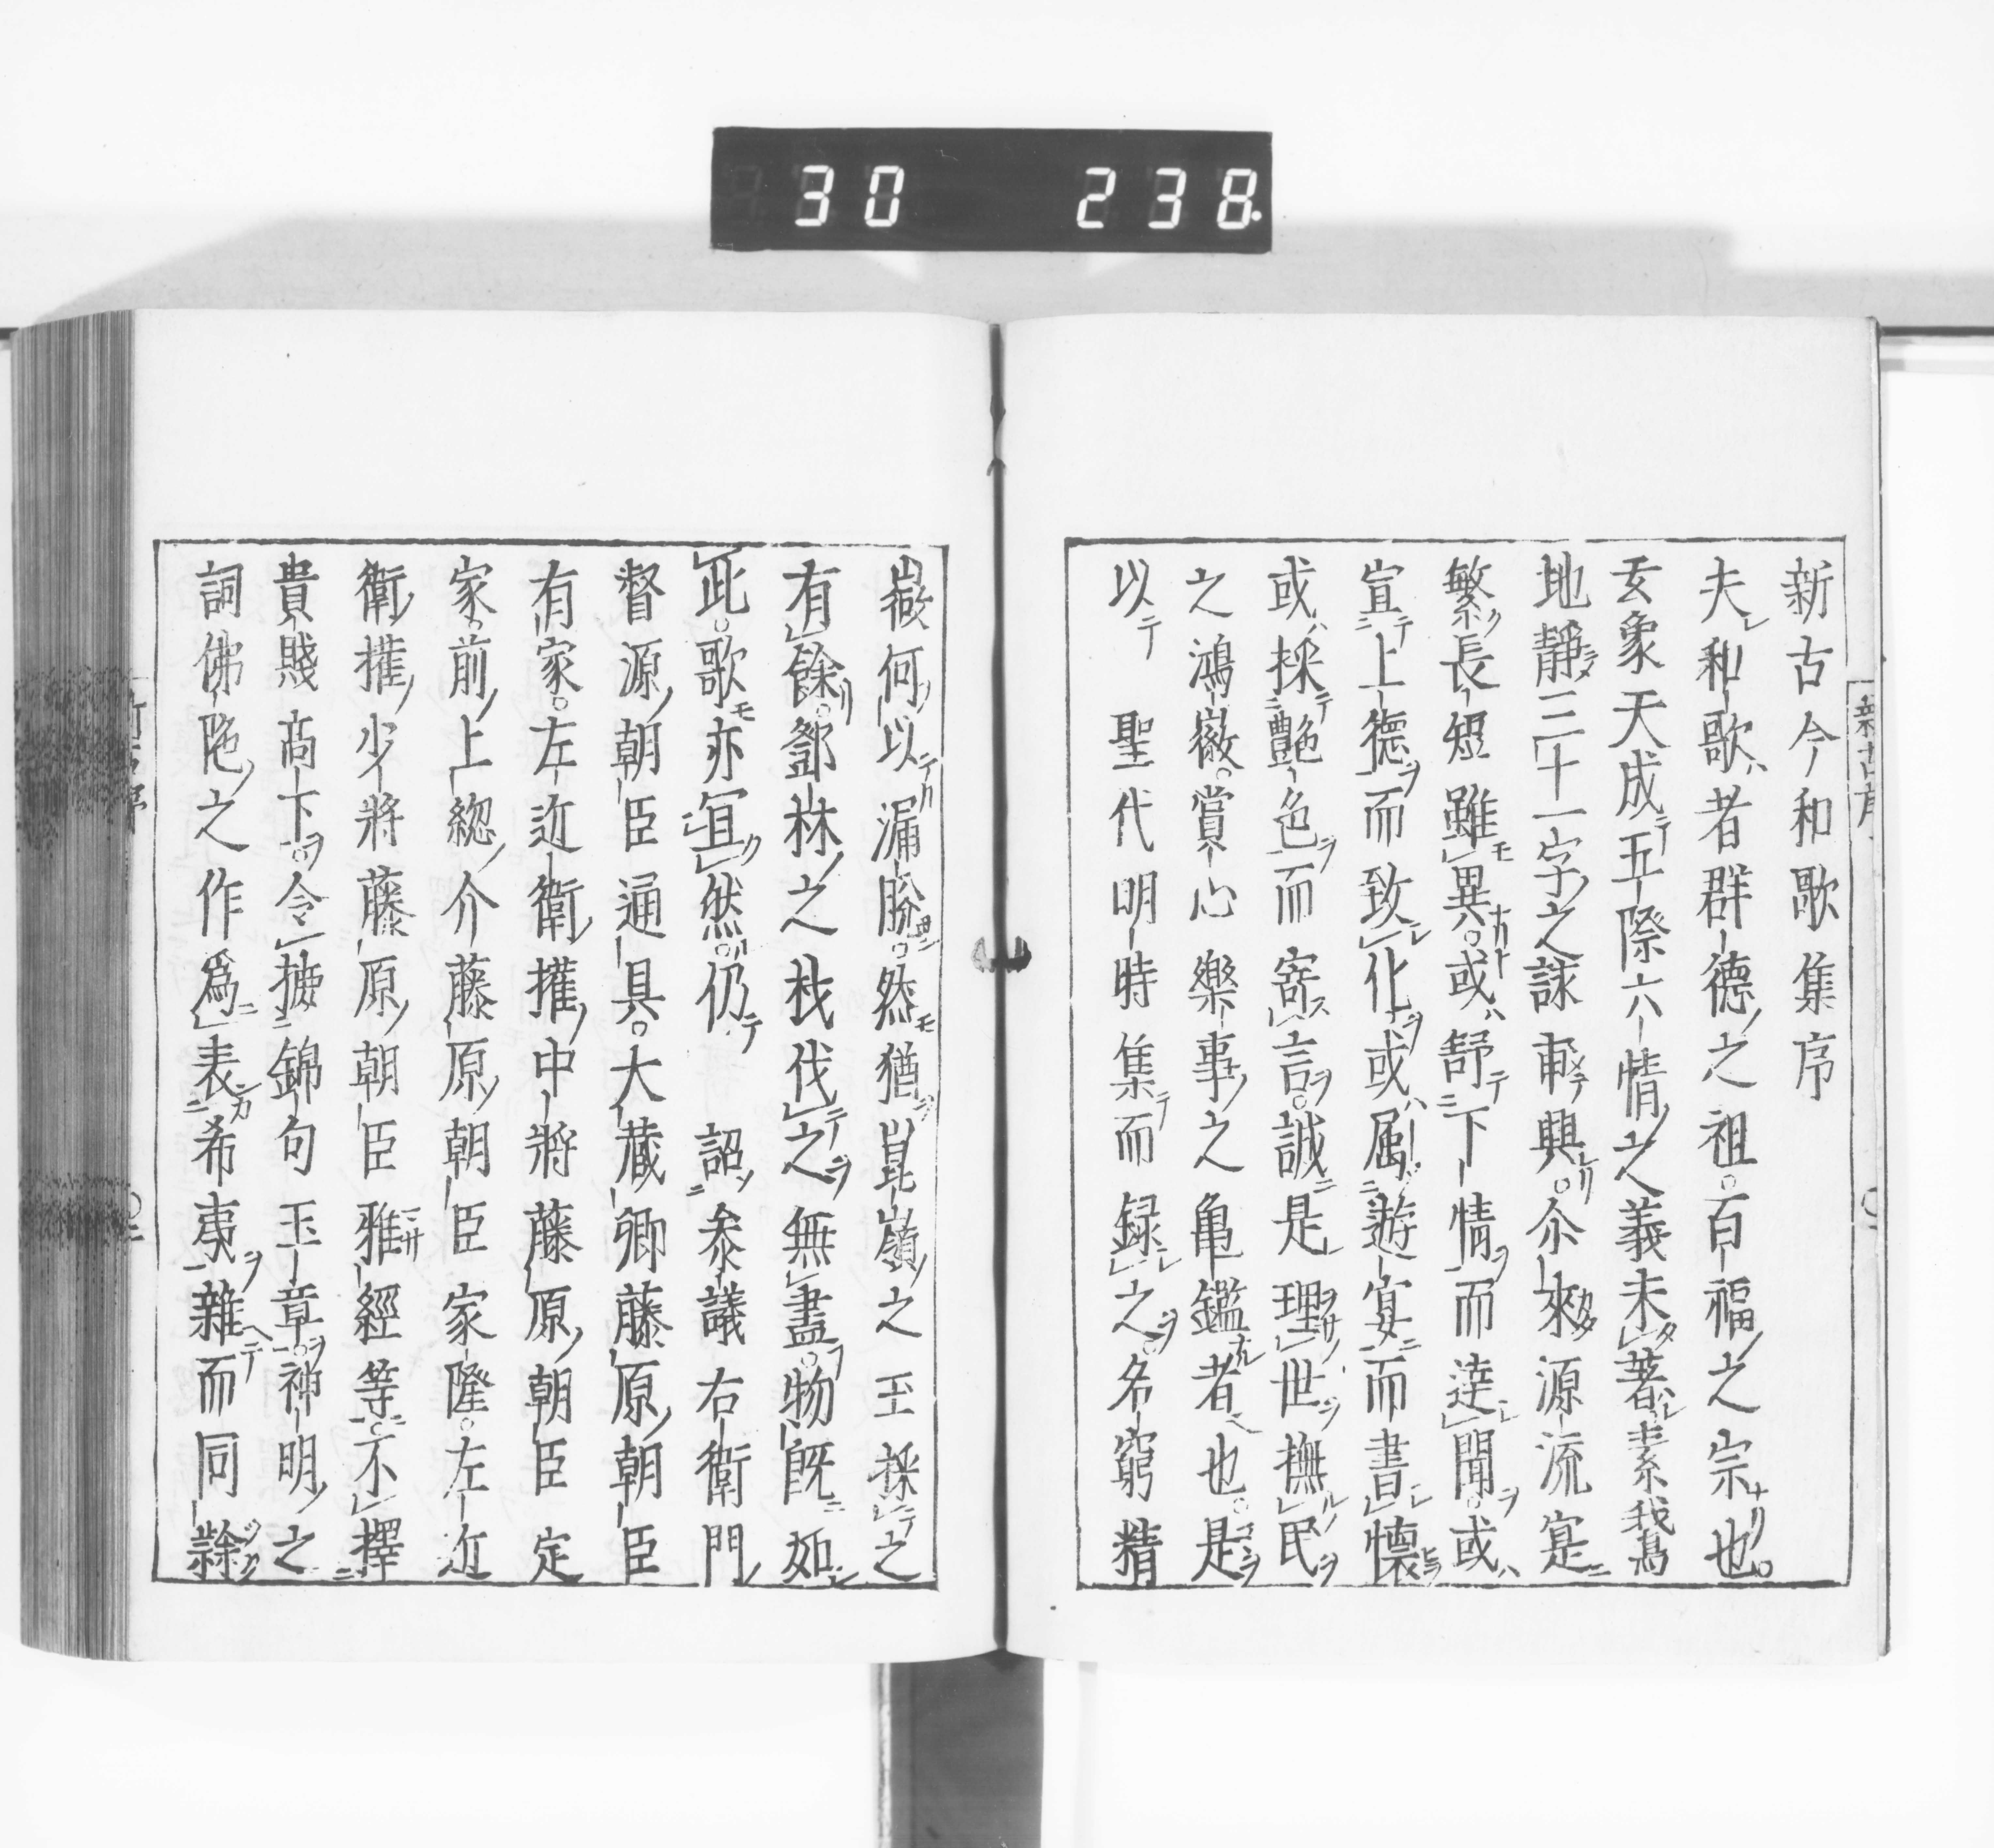 30 238.
新古今和歌集序
夫和歌者群德之祖百福之宗也
玄象天成五際六情之義未著素鵞
地靜三十一字之詠甫興尒來源流寔
繁長短雖異或舒下情而達聞或
宣上德而致化或属遊宴而書懷
或採艶色而寄言誠是理世撫民
之鴻徽賞心樂事之亀鑑者也是
以 聖代明時集而録之各窮精
微何以漏脱然猶崑嶺之玉採之
有餘鄧林之材伐之無盡物既如
此歌亦宜然仍 詔参議右衛門
督源朝臣通具大藏卿藤原朝臣
有家左近衛權中将藤原朝臣定
家前上総介藤原朝臣家隆左近
衛權少将藤原朝臣雅經等不擇
貴賤高下令摭錦句玉章神明之
詞佛陁之作爲表希夷雜而同隷